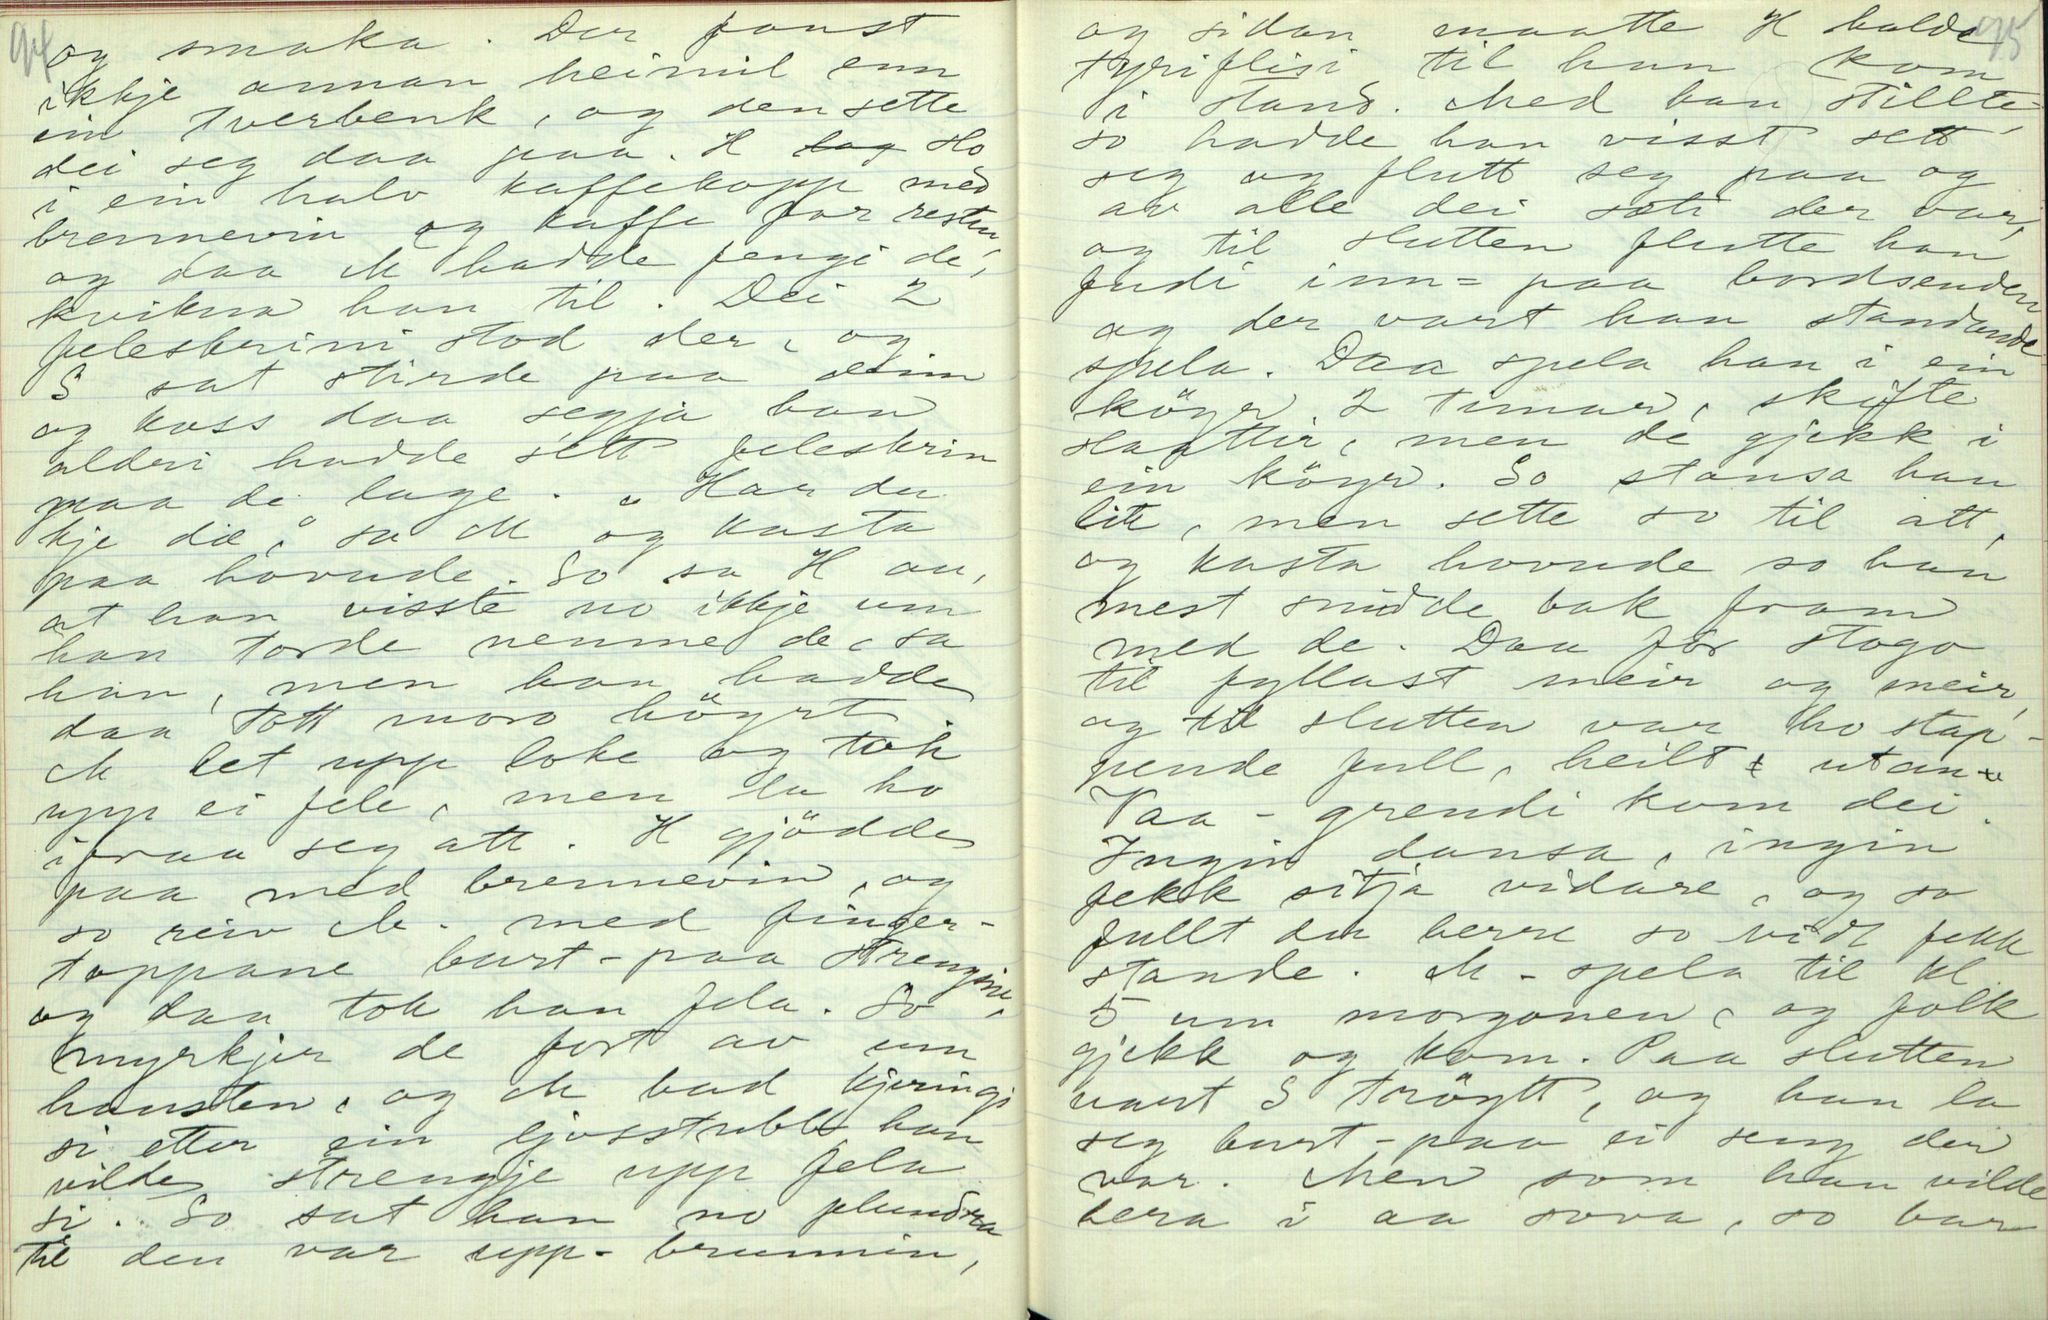 94
og smaka. Der fanst
ikkje annan heimil enn
ein tverbenk, og den sette
dei seg daa paa. H lag slo
i ein halv kaffekopp med
brennevin og kaffe for resten,
og daa M hadde fengi de,
kvikna han til. Dei 2
feleskrini stod der, og
S sat stirde paa deim
og koss daa segja han
aldri hadde sett feleskrin
paa de lage. „Har du
kje dæ“, sa M og kasta
paa hovude. So sa H au,
at han visste no ikkje um
han torde nemne de, sa
han, men han hadde
daa tott moro höyrt
M let upp loke og tok
upp ei fele, men la ho
ifraa seg att. H gjödde
paa med brennevin, og
so reiv M. med finger-
toppane burt-paa strengine,
og daa tok han fela. So
myrkjer de fort av um
hausten, og M bad kjeringi
si etter ein ljosstubb han
vilde strengje upp fela
si. So sat han no plundra
til den var upp-brunnin,
95
og sidan maatte H halde
tyriflisi til han kom
i stand. Med han stillte,
so hadde han visst sett
seg og flutt seg paa og
av alle dei sæti der var,
og til slutten flutte han
fudi inn-paa bordsenden
og der vart han standande
spela. Daa spela han i ein
köyr 2 timar, skifte
slaattir, men de gjekk i
ein köyr. So stansa han
lite, men sette so til att,
og kasta hovude so han
mest snudde bak fram
med de. Daa for stogo
til fyllast meir og meir,
og til slutten var ho stap-
pende full, heilt utan-
Vaa-grendi kom dei.
Ingin dansa, ingin
fekk sitja vidare, og so
fullt dei berre so vidt fekk
stande. M-spela til kl
5 um morgonen, og folk
gjekk og kom. Paa slutten
vart S tröytt, og han la
seg burt-paa ei seng der
var. Men som han vilde
bera i aa sova, so bar